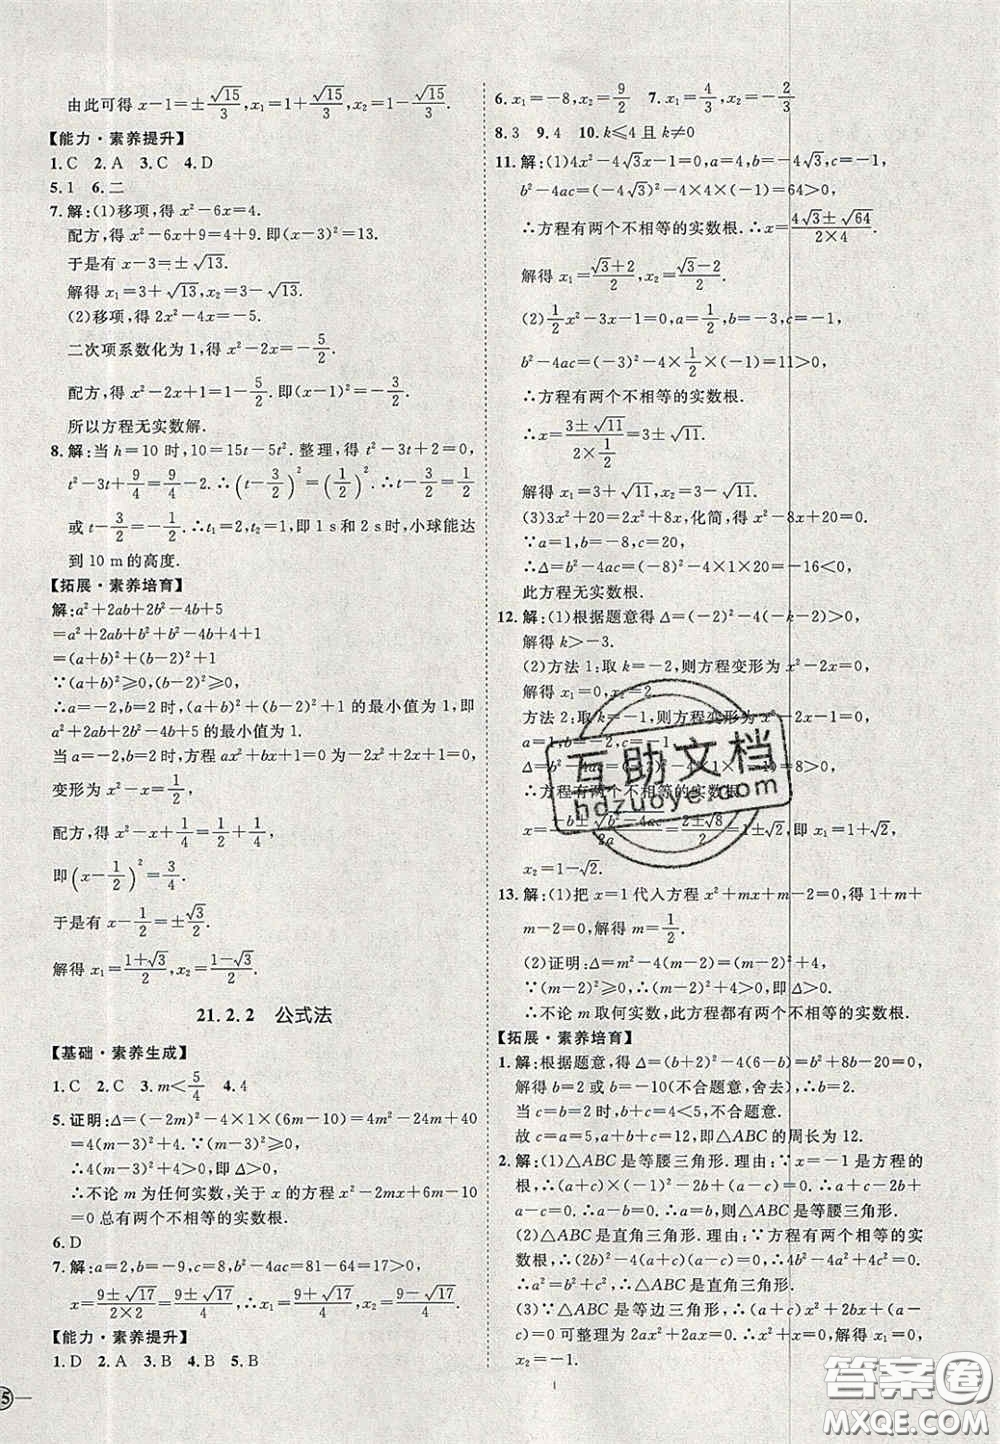 由此可得 x−1=±√15/3, x₁=1+√15/3, x₂=1−√15/3.
【能力·素养提升】
1. C 2. A 3. C 4. D
5. 1 6. 二
7. 解:(1)移项,得 x²−6x=4.
配方,得 x²−6x+9=4+9. 即(x−3)²=13.
于是有 x−3=±√13.
解得 x₁=3+√13, x₂=3−√13.
(2)移项,得 2x²−4x=−5.
二次项系数化为 1,得 x²−2x=−5/2.
配方,得 x²−2x+1=1−5/2. 即(x−1)²=−3/2.
所以方程无实数解.
8. 解:当 h=10 时,10=15t−5t². 整理,得 t²−3t=−2,
t²−3t+9/4=9/4−2. ∴(t−3/2)²=(1/2)². ∴t−3/2=1/2
或 t−3/2=−1/2. ∴t₁=2,t₂=1,即 1 s 和 2 s 时,小球能达
到 10 m 的高度.
【拓展·素养培育】
解:a²+2ab+2b²−4b+5
=a²+2ab+b²+b²−4b+4+1
=(a+b)²+(b−2)²+1.
∵(a+b)²≥0,(b−2)²≥0,
∴a=−2,b=2 时,(a+b)²+(b−2)²+1 的最小值为 1,即
a²+2ab+2b²−4b+5 的最小值为 1.
当 a=−2,b=2 时,方程 ax²+bx+1=0 为−2x²+2x+1=0,
变形为 x²−x=1/2,
配方,得 x²−x+1/4=1/2+1/4,
即(x−1/2)²=3/4.
于是有 x−1/2=±√3/2.
解得 x₁=(1+√3)/2, x₂=(1−√3)/2.
21.2.2 公式法
【基础·素养生成】
1. C 2. C 3. m<5/4 4. 4
5. 证明:Δ=(−2m)²−4×1×(6m−10)=4m²−24m+40
=4(m−3)²+4. ∵(m−3)²≥0,
∴4(m−3)²+4>0. 即 Δ>0.
∴不论 m 为任何实数,关于 x 的方程 x²−2mx+6m−10
=0 总有两个不相等的实数根.
6. D
7. 解:a=2,b=−9,c=8,b²−4ac=81−64=17>0.
x=(9±√17)/(2×2)=(9±√17)/4, x₁=(9+√17)/4, x₂=(9−√17)/4.
【能力·素养提升】
1. D 2. A 3. B 4. B 5. B
6. x₁=−8, x₂=9/2 7. x₁=4/3, x₂=−2/3
8. 3 9. 4 10. k≤4 且 k≠0
11. 解:(1)4x²−4√3x−1=0,a=4,b=−4√3,c=−1,
b²−4ac=(−4√3)²−4×4×(−1)=64>0,
∴方程有两个不相等的实数根. ∴x=(4√3±√64)/(2×4).
解得 x₁=(√3+2)/2, x₂=(√3−2)/2.
(2)1/2x²−3x−1=0,a=1/2,b=−3,c=−1,
b²−4ac=(−3)²−4×1/2×(−1)=11>0,
∴方程有两个不相等的实数根.
∴x=(3±√11)/(2×1/2)=3±√11,
解得 x₁=3+√11, x₂=3−√11.
(3)3x²+20=2x²+8x,化简,得 x²−8x+20=0.
∵a=1,b=−8,c=20,
∴Δ=b²−4ac=(−8)²−4×1×20=−16<0,
此方程无实数根.
12. 解:(1)根据题意得 Δ=(−2)²−4(−k−2)>0,
解得 k>−3.
(2)方法 1:取 k=−2,则方程变形为 x²−2x=0,
解得 x₁=0,x₂=2.
方法 2:取 k=−1,则方程变形为 x²−2x−1=0,
a=1,b=−2,c=−1.
∴方程有两个不相等的实数根.
x=(−b±√(b²−4ac))/2a=(2±√8)/2=1±√2,即 x₁=1+√2,
x₂=1−√2.
13. 解:(1)把 x=1 代入方程 x²+mx+m−2=0,得 1+m+
m−2=0,解得 m=1/2.
(2)证明:Δ=m²−4(m−2)=(m−2)²+4,
∵(m−2)²≥0,∴(m−2)²+4>0,即 Δ>0,
∴不论 m 取何实数,此方程都有两个不相等的实数根.
【拓展·素养培育】
1. 解:根据题意,得 Δ=(b+2)²−4(6−b)=b²+8b−20=0,
解得 b=2 或 b=−10(不合题意,舍去),
当 c=b=2 时,b+c=4<5,不合题意.
故 c=a=5,a+b+c=12,即△ABC 的周长为 12.
2. 解:(1)△ABC 是等腰三角形. 理由:∵x=−1 是方程的
根,∴(a+c)×(−1)²−2b+(a−c)=0,∴a+c−2b+a−c
=0,∴a−b=0,∴a=b,则△ABC 是等腰三角形.
(2)△ABC 是直角三角形. 理由:∵方程有两个相等的实
数根,∴(2b)²−4(a+c)(a−c)=0,∴4b²−4a²+4c²=0,
∴a²=b²+c²,∴△ABC 是直角三角形.
(3)∵△ABC 是等边三角形,∴(a+c)x²+2bx+(a−c)
=0 可整理为 2ax²+2ax=0,∴x²+x=0,解得 x₁=0,
x₂=−1.
互助文档
hdzuoye.com
答案圈
MXQE.COM